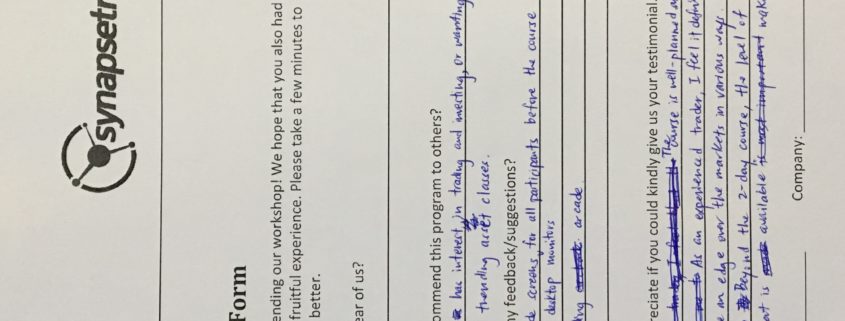 synapsetr
Form
ending our workshop! We hope that you also had
fruitful experience. Please take a few minutes to
better.
ear of us?
ommend this program to others?
has interest in trading and investing, or wanting
trending asset classes.
ny feedback/suggestions?
de screens for all participants before the course
desktop monitors
arcade.
reciate if you could kindly give us your testimonial.
The course is well-planned
As an experienced trader, I feel it
an edge over the markets in various ways.
Beyond the 2-day course, the level of
is available
Company: